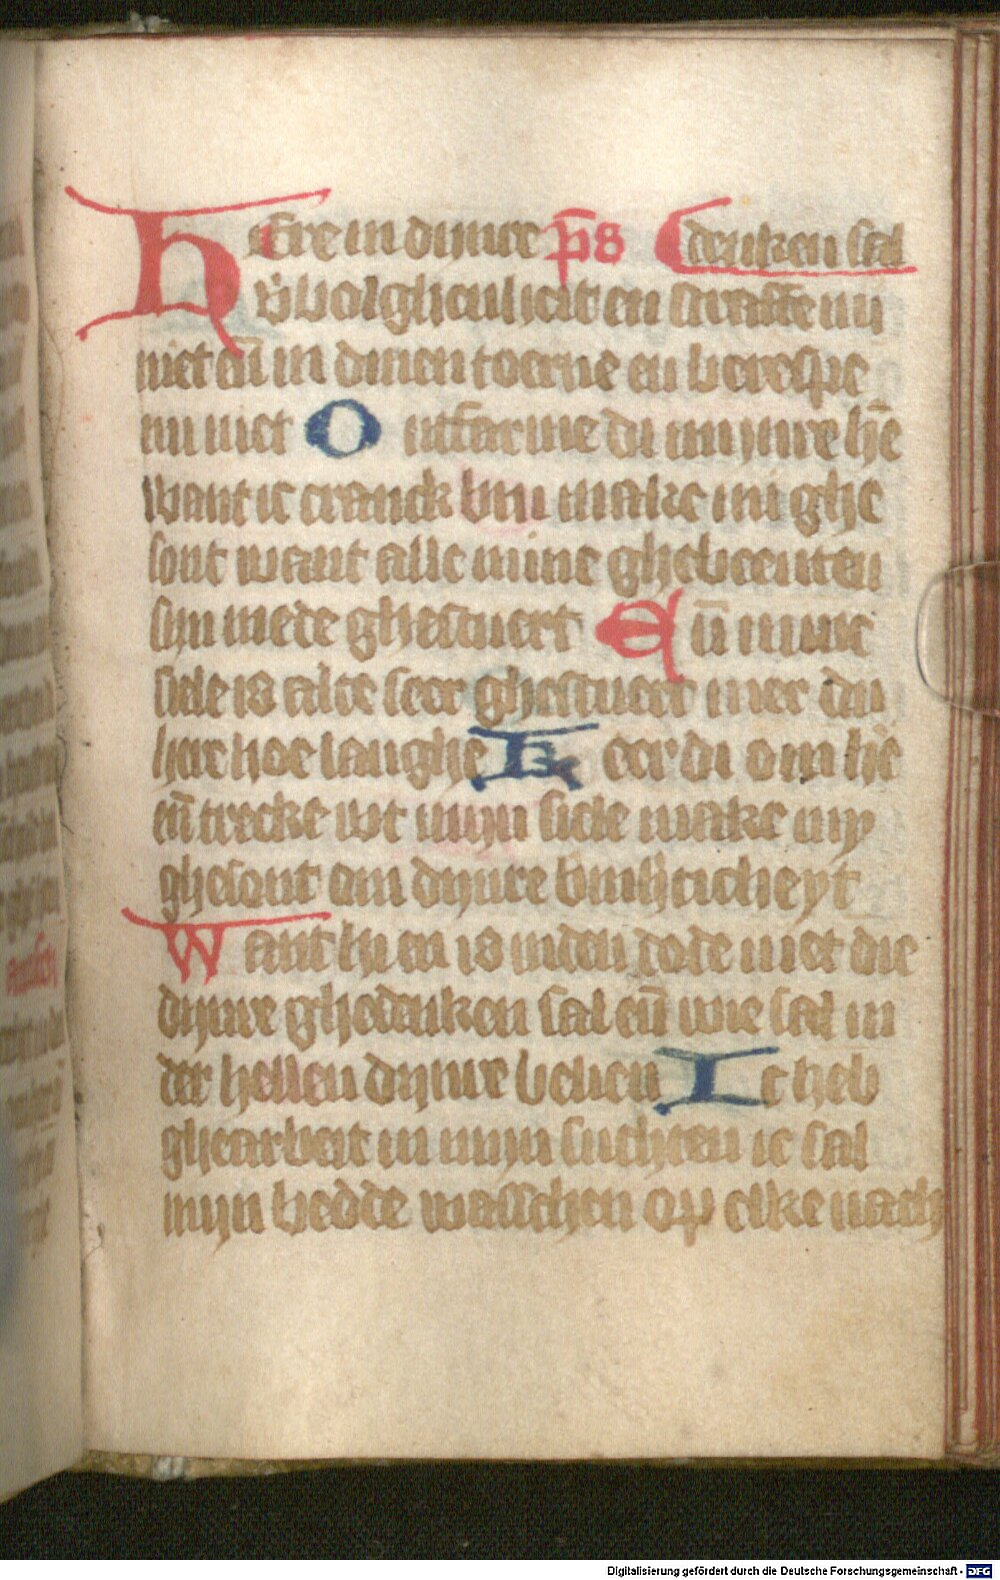 Here in dynre ps denken sal
v̓bolghenheit en straffe mi
niet eñ in dinen toerne en berespe
mi niet Ontfarme di mijnre hē
want ic cranck bin make mi ghe
sont want alle mine ghebeenten
sijn mede ghestuert Eñ mine
siele is alte seer ghestuert mer du
here hoe langhe Keer di om hē
eñ trecke wt mijn siele make my
ghesont om dynre bmhticheyt
Want hi en is inden dode niet die
dijnre ghedenken sal eñ wie sal in
der hellen dijnre belien Ic heb
ghearbeit in mijn suchten ic sal
mijn bedde wasschen op elke nach
Digitalisierung gefördert durch die Deutsche Forschungsgemeinschaft - DFG